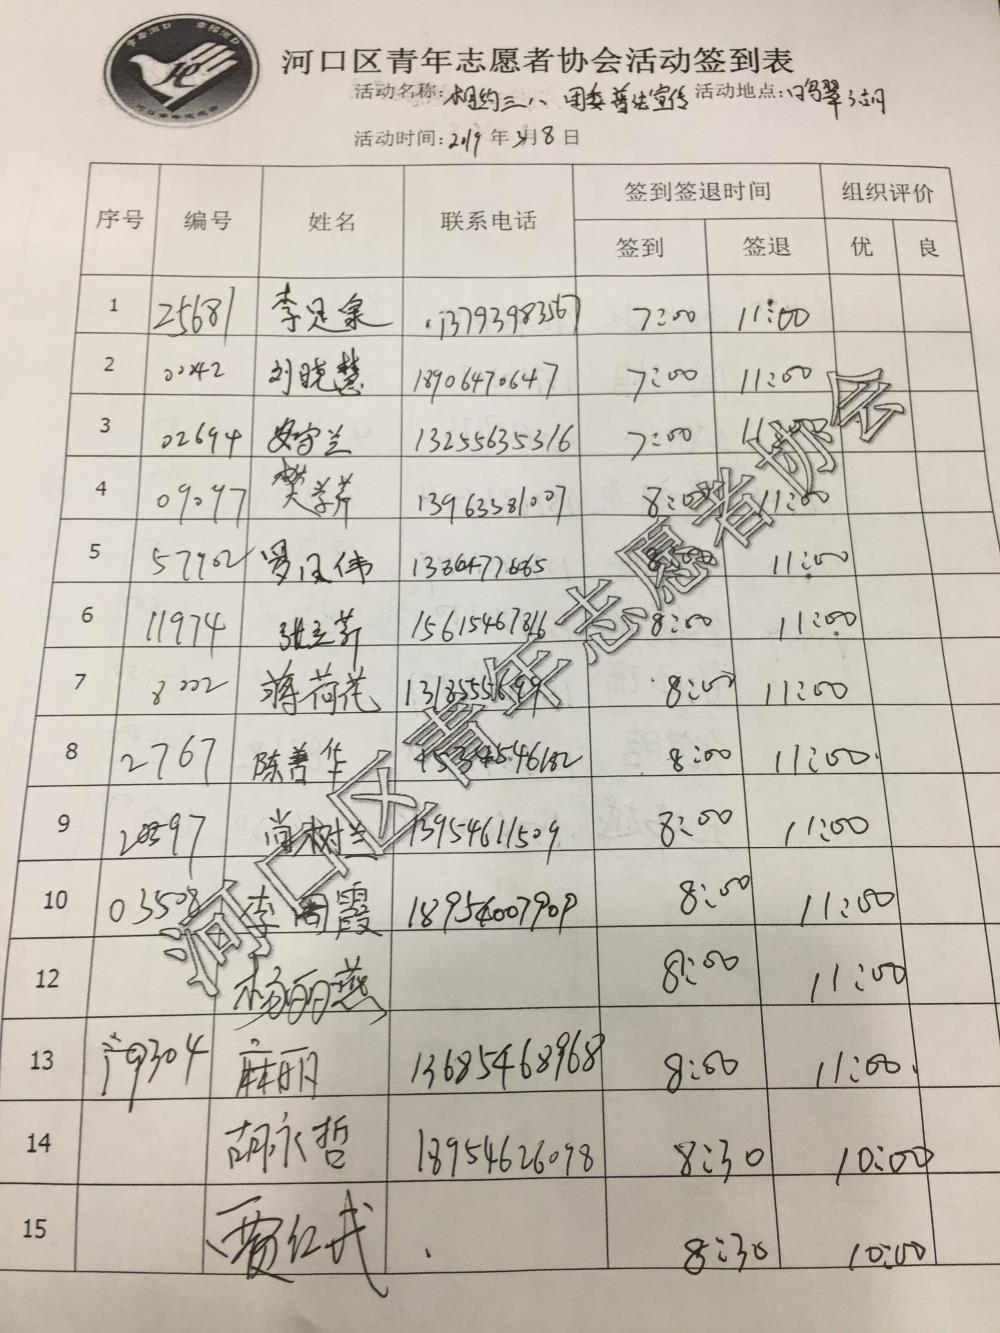 河口区青年志愿者协会活动签到表
活动名称：相约三八 团委普法宣传 活动地点：
活动时间：2019年3月8日
序号 编号 姓名 联系电话 签到签退时间 组织评价
签到 签退 优 良
1 25681 13793983567 7:00 11:00
2 00242 刘晓慧 18906470647 7:00 11:00
3 02694 安守兰 13255635316 7:00
4 09097 樊学芹 13963381007 8:00 11:00
5 57902 伟 8:00 11:00
6 11974 张立芹 8:00 11:00
7 8002 薄荷花 8:00 11:00
8 2767 陈善华 8:00 11:00
9 尚树兰 13954611509 8:00 11:00
10 03508 李国霞 18954007909 8:00 11:00
12 杨丽燕 8:00 11:00
13 麻丽 13685468968 8:00 11:00
14 胡永哲 18954626098 8:30 10:00
15 贾红武 8:30 10:00
河口区青年志愿者协会